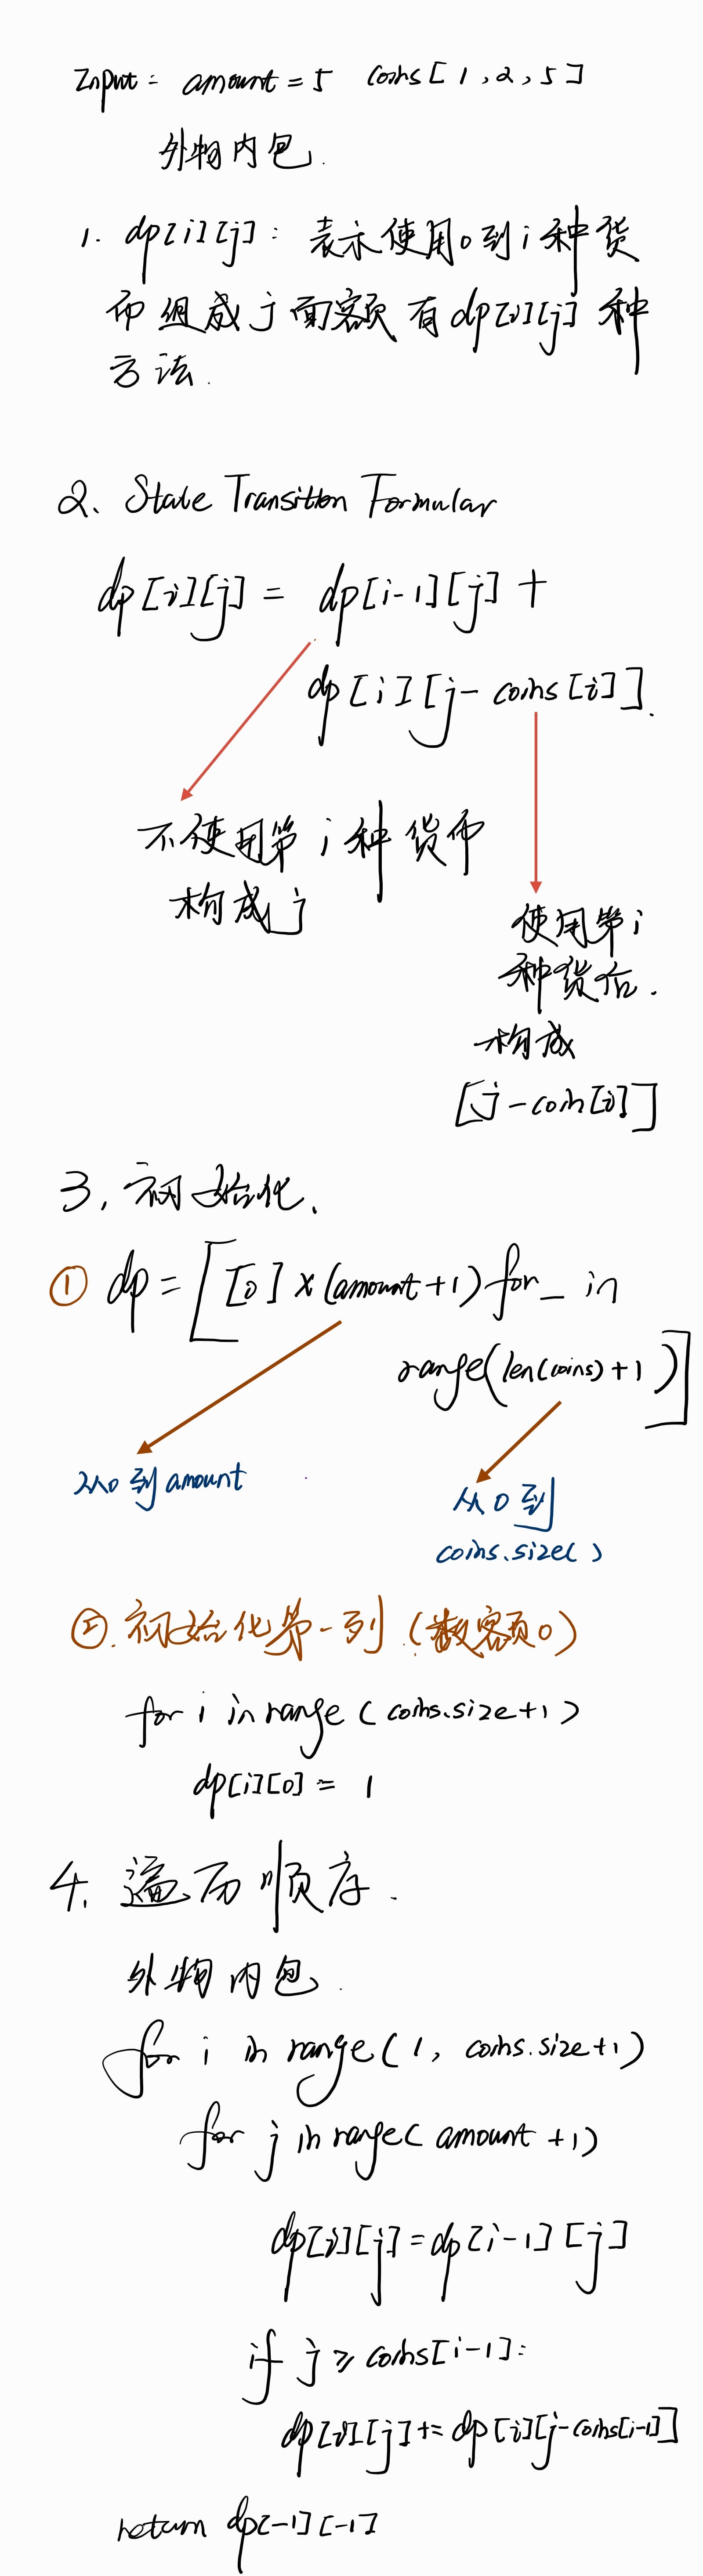 Input: amount = 5 coins[1,2,5]
外物内包.
1. dp[i][j]: 表示使用0到i种货
币组成j面额有dp[i][j]种
方法.
2、State Transition Formular
dp[i][j] = dp[i-1][j] +
dp[i][j- coins[i]].
不使用第i种货币
构成j
使用第i
种货后.
构成
[j-coin[i]]
3、初始化、
① dp = [[0] × (amount+1) for _ in
range(len(coins)+1)]
从0到amount
从0到
coins.size()
②. 初始化第一列.(数额0)
for i in range (coins.size+1)
dp[i][0] = 1
4、遍历顺序.
外物内包.
for i in range(1, coins.size+1)
for j in range( amount +1)
dp[i][j] = dp[i-1][j]
if j ≥ coins[i-1]:
dp[i][j] += dp[i][j-coins[i-1]]
return dp[-1][-1]